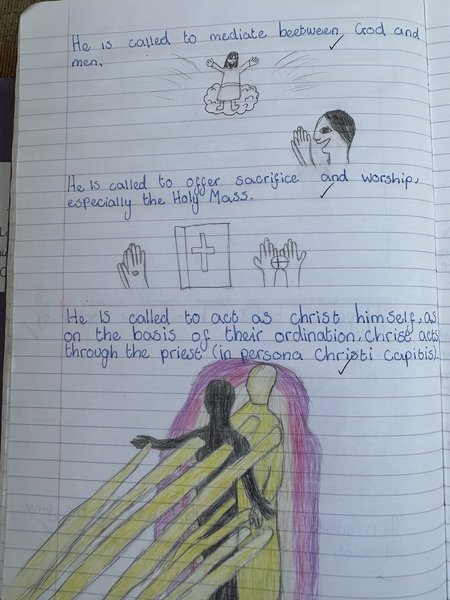 He is called to mediate beetween God and
men.
He Is called to offer sacrifice and worship,
especially the Holy Mass.
He Is called to act as christ himself, as
on the basis of their ordination, Christ acts
through the priest (in persona Christi capitis).